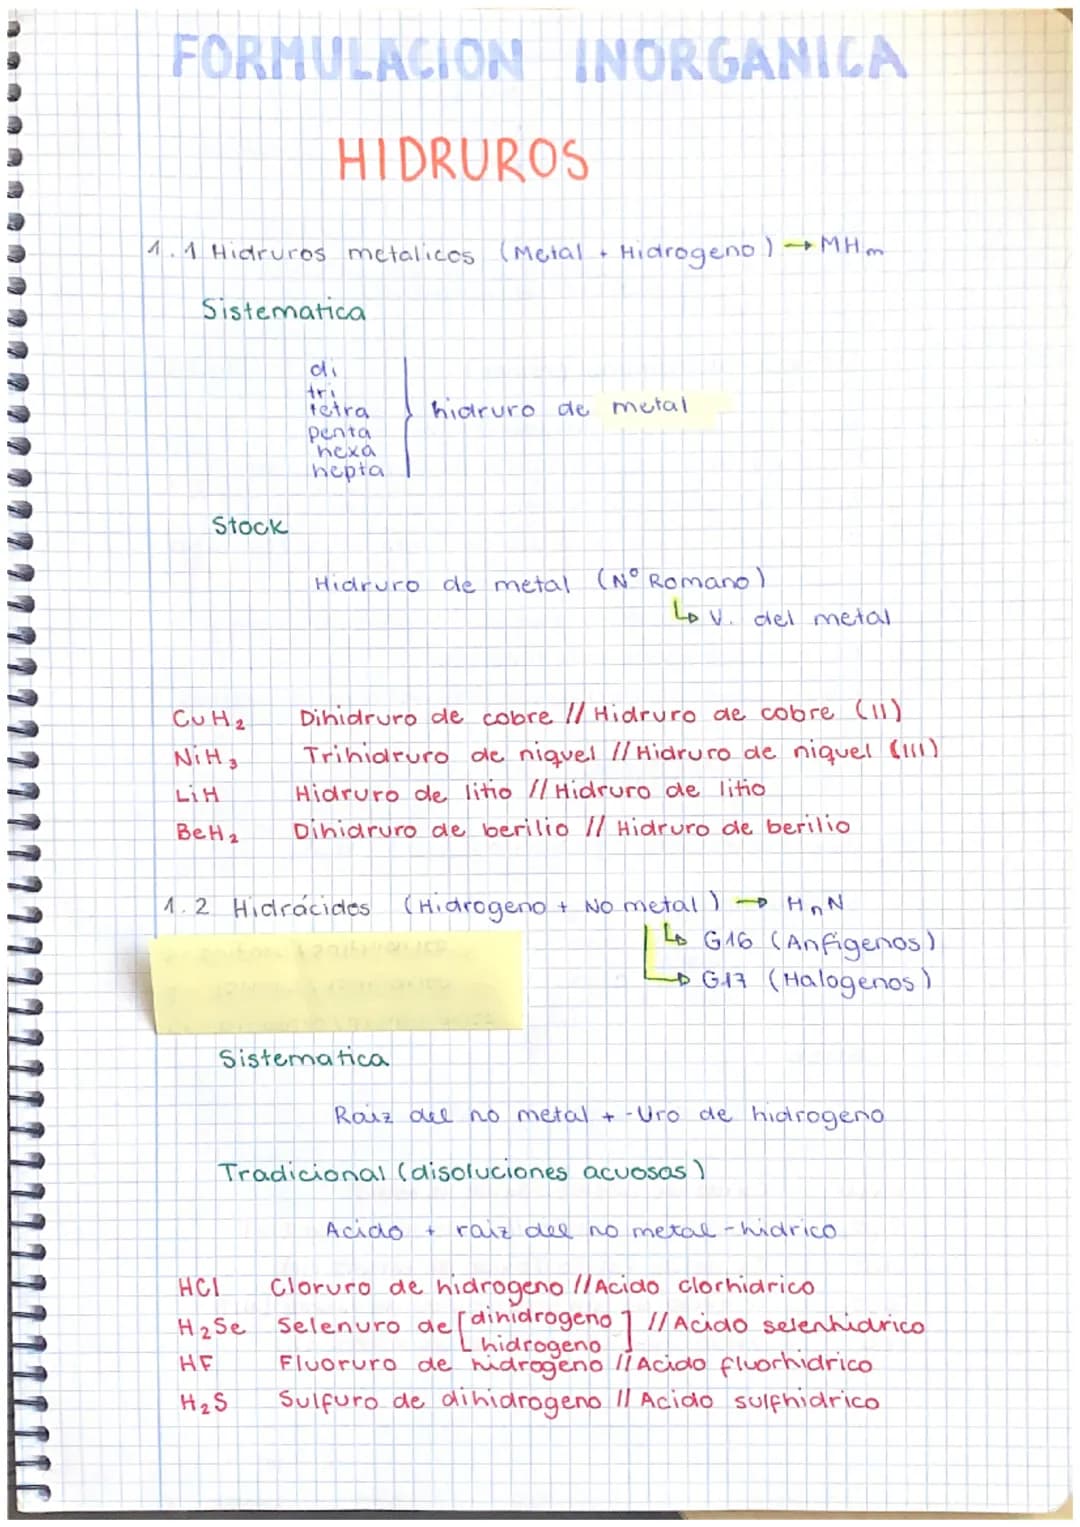 FORMULACION INORGANICA
HIDRUROS
1.1 Hidruros metalicos (Metal + Hidrogeno) → MHm
Sistematica
di
tri
tetra
penta
hexa
hepta
hidruro de metal
Stock
Hidruro de metal (Nº Romano)
↳ V. del metal
CuH₂ Dihidruro de cobre // Hidruro de cobre (II)
NiH₃ Trihidruro de niquel // Hidruro de niquel (III)
LiH Hidruro de litio // Hidruro de litio
BeH₂ Dihidruro de berilio // Hidruro de berilio
1.2 Hidrácidos (Hidrogeno + No metal) → HnN
↳ G16 (Anfigenos)
↳ G17 (Halogenos)
Sistematica
Raiz del no metal + -uro de hidrogeno
Tradicional (disoluciones acuosas)
Acido + raiz del no metal -hidrico
HCl Cloruro de hidrogeno // Acido clorhidrico
H₂Se Selenuro de [dihidrogeno hidrogeno] // Acido selenhidrico
HF Fluoruro de hidrogeno // Acido fluorhidrico
H₂S Sulfuro de dihidrogeno // Acido sulfhidrico